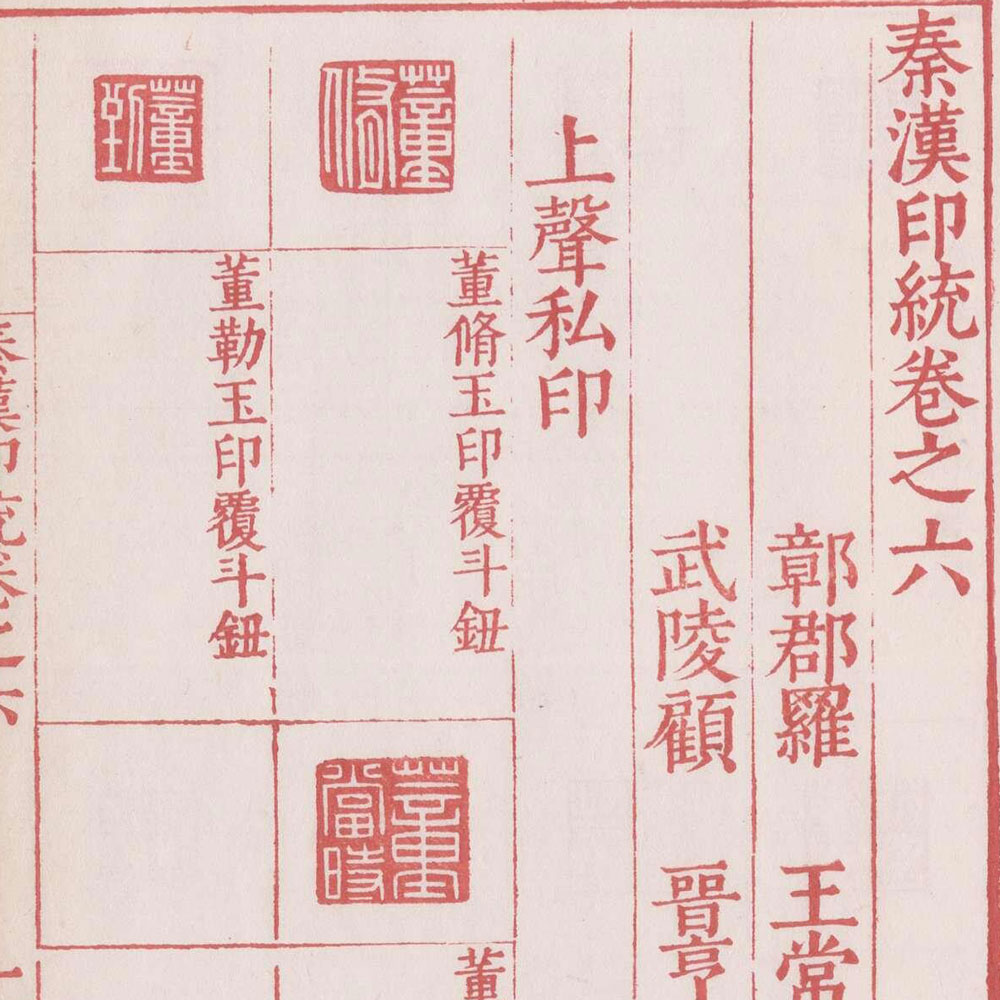 秦漢印統卷之六
鄣郡羅 王常
武陵顧 晉亨
上聲私印
董脩
董脩玉印覆斗鈕
董當時
董
董勒
董勒玉印覆斗鈕
秦漢印統卷之六